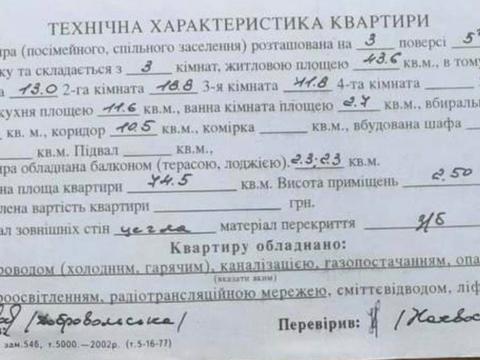 ТЕХНІЧНА ХАРАКТЕРИСТИКА КВАРТИРИ
ира (посімейного, спільного заселення) розташована на 3 поверсі 5
ку та складається з 3 кімнат, житловою площею 43.6 кв.м., в тому
а 13.0 2-га кімната 18.8 3-я кімната 11.8 4-та кімната
кухня площею 11.6 кв.м., ванна кімната площею 2.7 кв.м., вбираль
кв. м., коридор 10.5 кв.м., комірка кв.м., вбудована шафа
кв.м. Підвал кв.м.,
ира обладнана балконом (терасою, лоджією). 2.3; 2.3 кв.м.
на площа квартири 74.5 кв.м. Висота приміщень 2.50
лена вартість квартири грн.
ал зовнішніх стін цегла матеріал перекриття з/б
Квартиру обладнано:
роводом (холодним, гарячим), каналізацією, газопостачанням, опа
(вказати яким)
роосвітленням, радіотрансляційною мережею, сміттєвідводом, ліф
(Добровольська) Перевірив:
зам.546, т.5000.—2002р. (т.5-16-77)